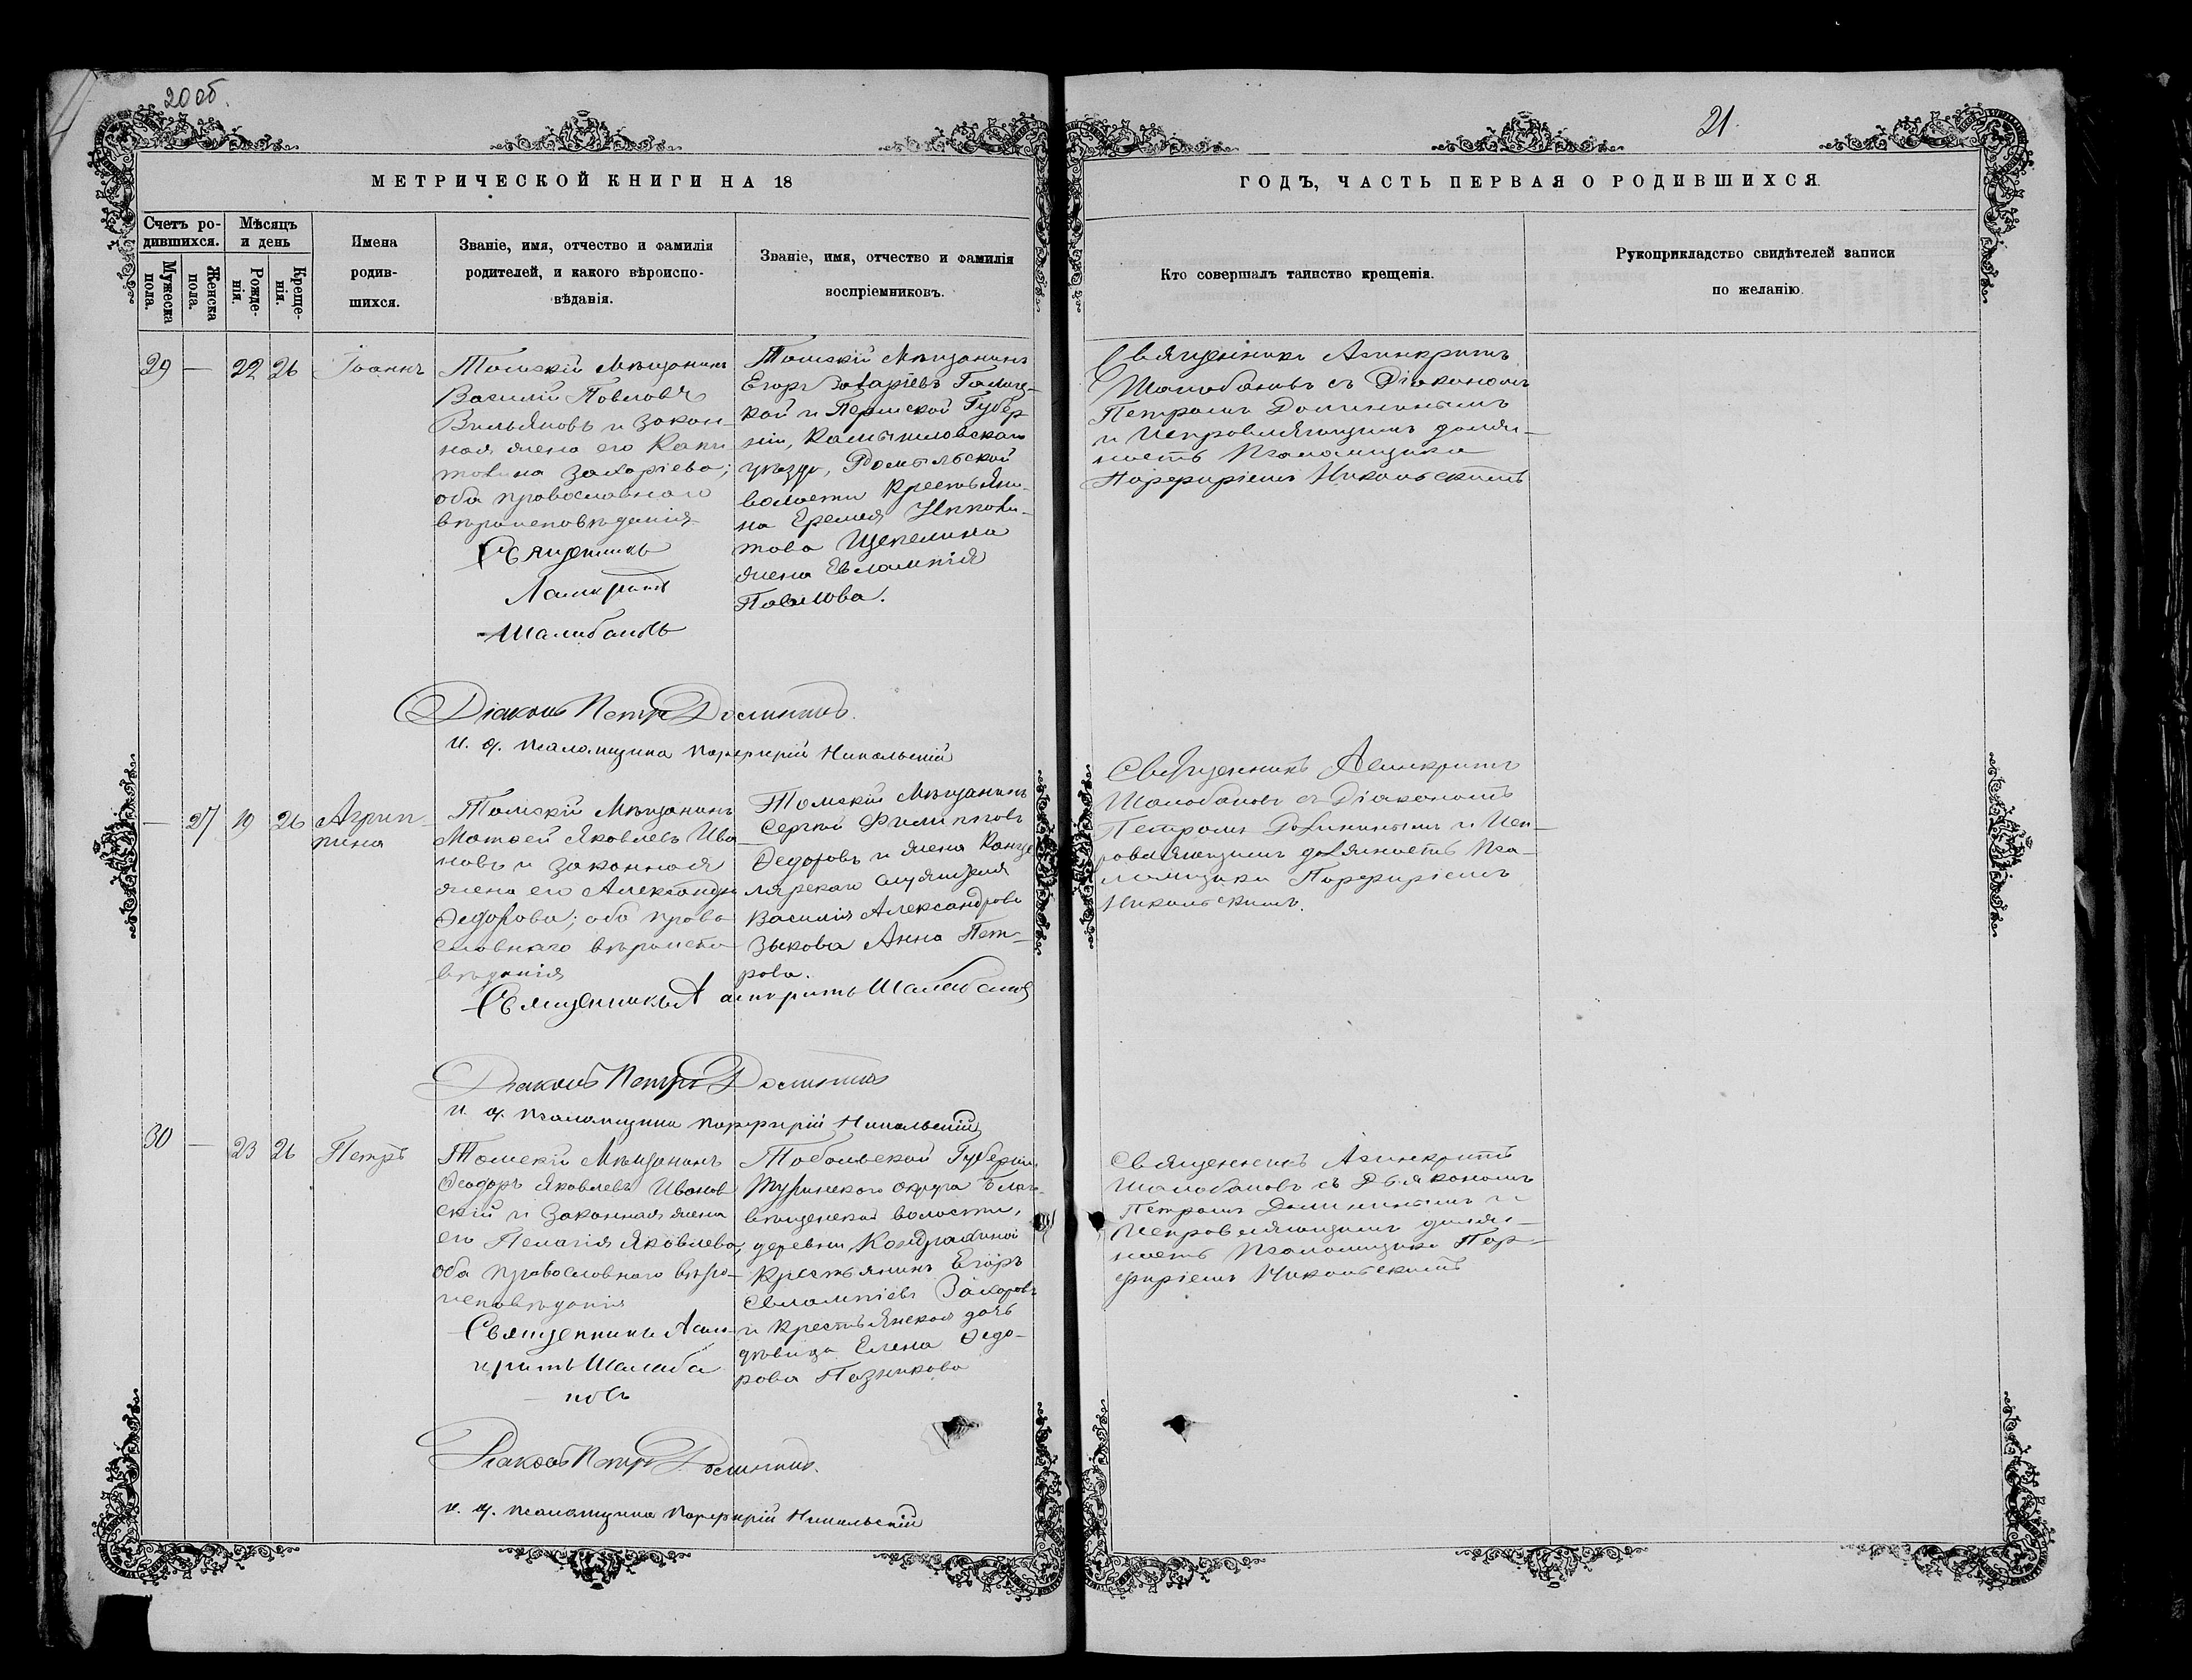 20 об.
МЕТРИЧЕСКОЙ КНИГИ НА 18
Счетъ родившихся.
Мѣсяцъ и день
Мужеска пола.
Женска пола.
Рожденія.
Крещенія.
Имена
родив-
шихся.
Званіе, имя, отчество и фамилія
родителей, и какого вѣроиспо-
вѣданія.
Званіе, имя, отчество и фамилія
воспріемниковъ.
29 — 22 26 Іоаннъ
Томскій Мѣщанинъ
Василій Павловъ
и закон-
ная жена его Капи
толина Захаріева;
оба православнаго
вѣроисповѣданія
Священникъ
Асинкритъ
Шалабановъ
Томскій Мѣщанинъ
Егоръ Захаріевъ
кой и Пермской Губер
ніи, Камышловскаго
уѣзда,
волости Крестьяни-
на Еремея Иппoли-
това Щепелина
жена Евлампія
Павлова.
Діаконъ Петръ
и. д. псаломщика Порфирій Никольскій
— 27 19 26 Агрип-
пина
Томскій Мѣщанинъ
Матѳей Яковлевъ Ива
новъ и законная
жена его Александра
Ѳедорова; оба право
славнаго вѣроиспо
вѣданія
Томскій Мѣщанинъ
Сергій Филипповъ
Ѳедоровъ и жена Канце
лярскаго служителя
Василія Александрова
Зыкова Анна Пет-
рова.
Священникъ Асинкритъ Шалабановъ
Діаконъ Петръ
и. д. псаломщика Порфирій Никольскій
30 — 23 26 Петръ
Томскій Мѣщанинъ
Ѳеодоръ Яковлевъ Иванов
скій и законная жена
его Пелагія Яковлева;
оба православнаго вѣро-
исповѣданія
Священникъ Асин-
критъ Шалаба
— новъ
Тобольской Губерніи
Туринскаго округа Благо-
вѣщенской волости,
деревни Кондрахиной
Крестьянинъ Егоръ
Евлампіевъ Захаровъ
и Крестьянская дочь
дѣвица Елена Ѳедо-
рова Позникова
Діаконъ Петръ
и. д. псаломщика Порфирій Никольскій
21.
ГОДЪ, ЧАСТЬ ПЕРВАЯ О РОДИВШИХСЯ.
Кто совершалъ таинство крещенія.
Рукоприкладство свидѣтелей записи
по желанію.
Священникъ Асинкритъ
Шалабановъ съ Діакономъ
Петромъ
и Исправляющимъ долж-
ность Псаломщика
Порфиріемъ Никольскимъ
Священникъ Асинкритъ
Шалабановъ съ Діакономъ
Петромъ и Исп-
равляющимъ должность Пса-
ломщика Порфиріемъ
Никольскимъ.
Священникъ Асинкритъ
Шалабановъ съ Діакономъ
Петромъ и
Исправляющимъ долж-
ность Псаломщика Пор-
фиріемъ Никольскимъ